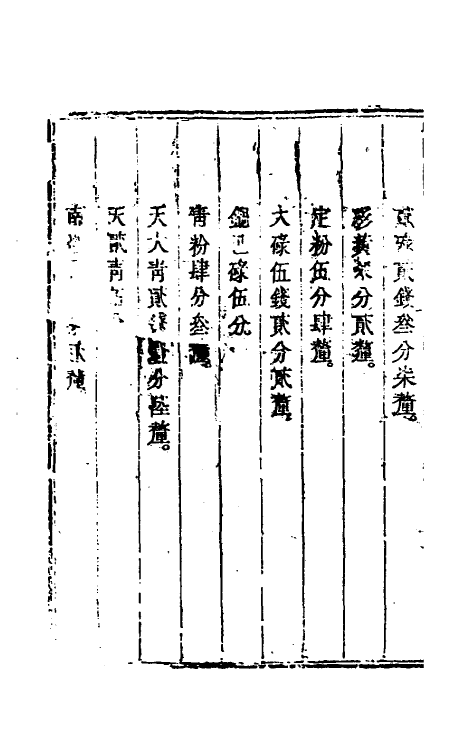 貳碌貳錢叁分柒釐
彩黃柒分貳釐
定粉伍分肆釐
大碌伍錢貳分貳釐
碌伍分
青粉肆分叁釐
天大青貳錢分陸釐
天貳青
南貳釐